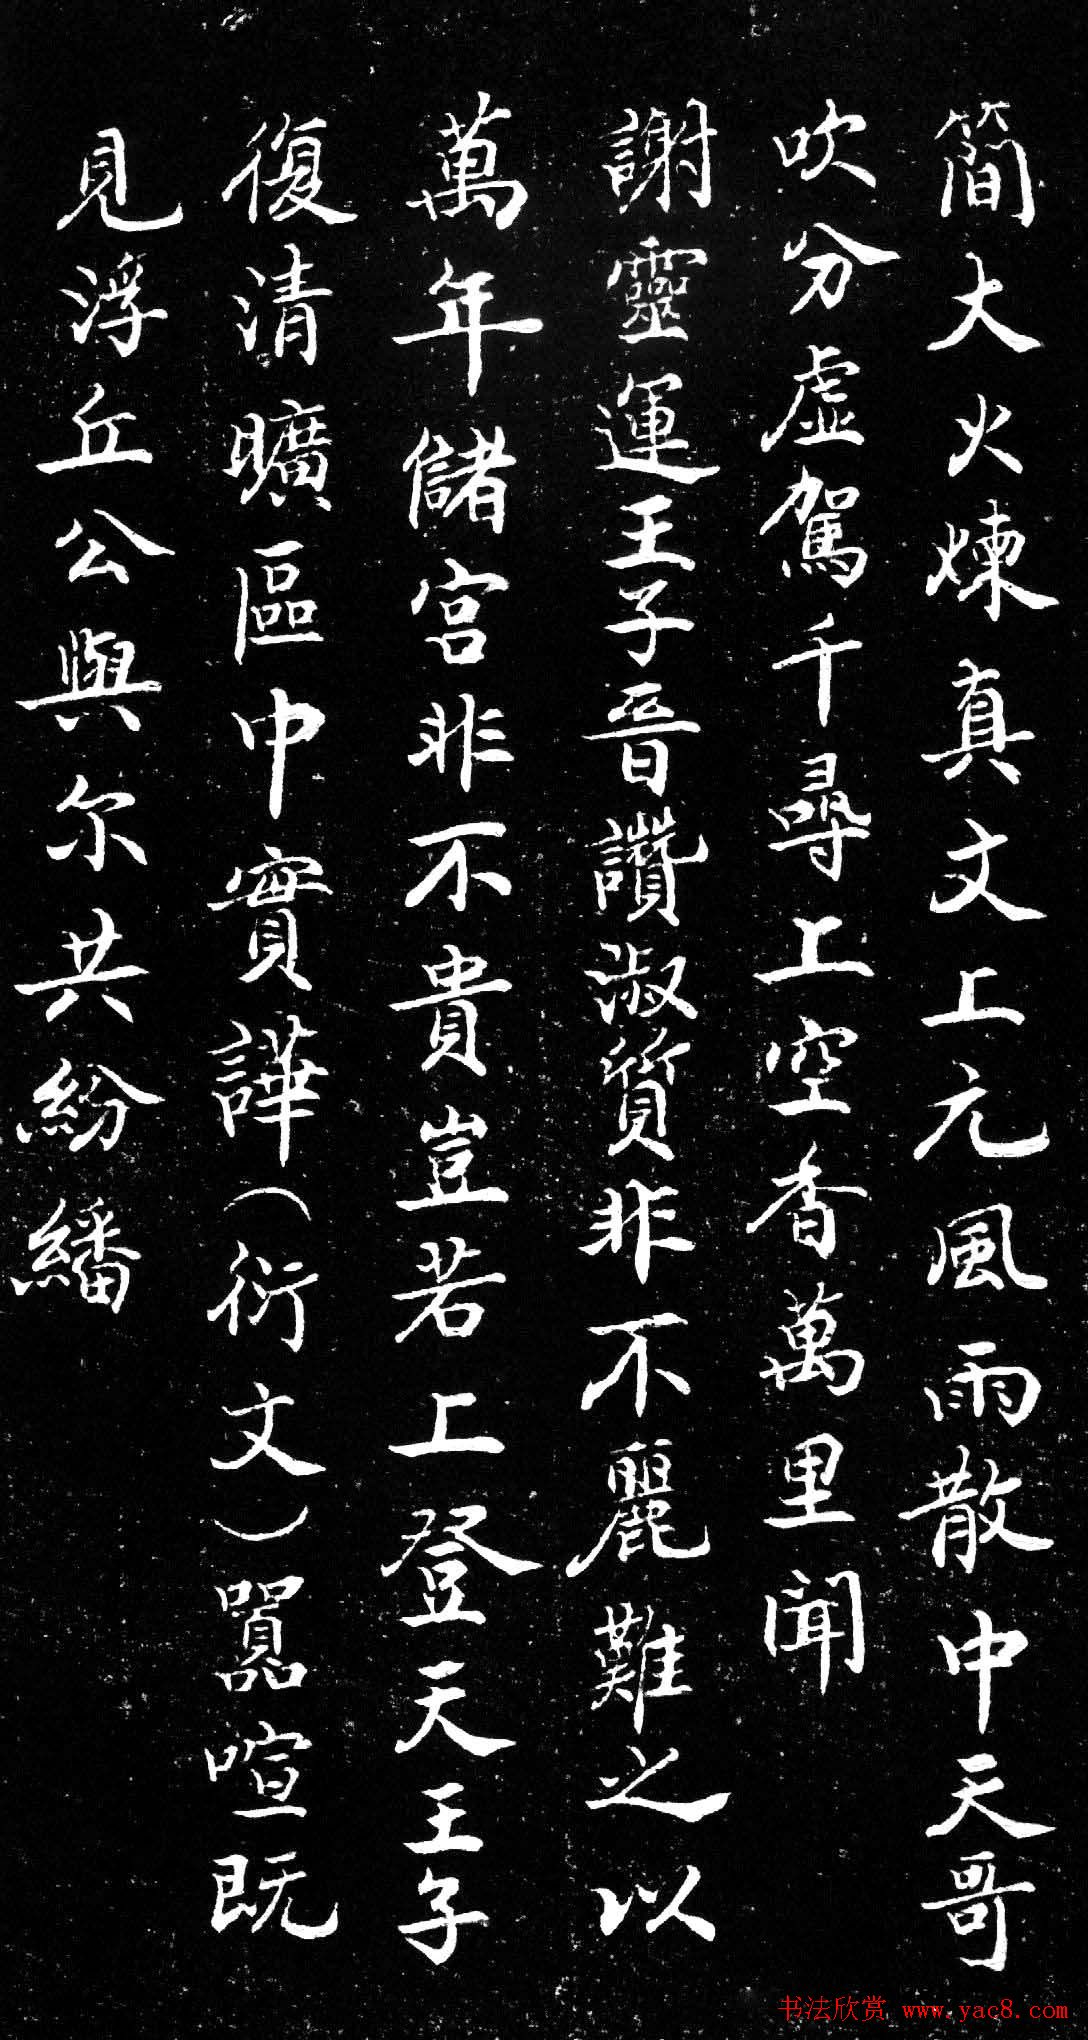 簡大火煉真文上元風雨散中天哥
吹分虛駕千尋上空香萬里聞
謝靈運王子晉讚淑質非不麗難之以
萬年儲宮非不貴豈若上登天王子
復清曠區中實譁（衍文）囂喧既
見浮丘公與尔共紛繙
书法欣赏 www.yac8.com